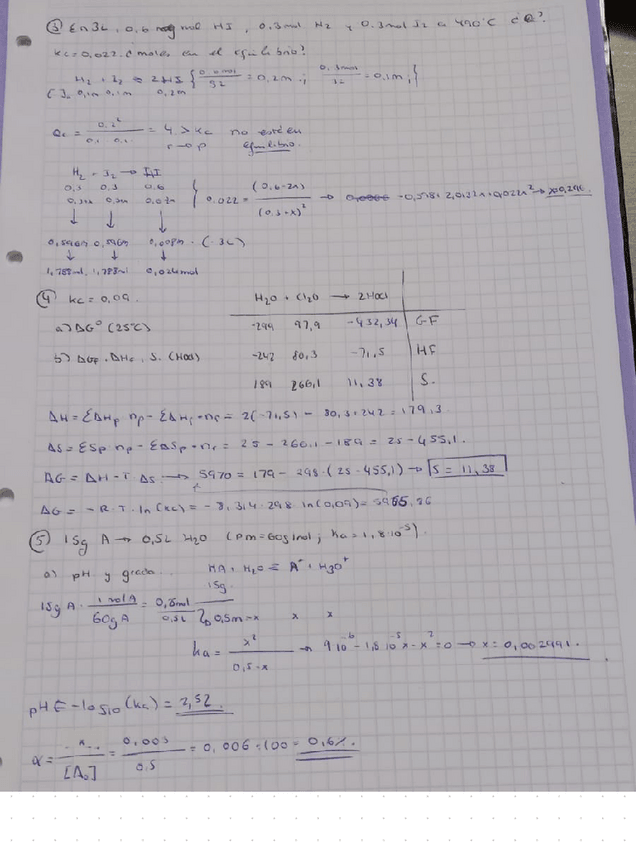 ③ En 3L, 0,6 mol HI, 0.3mol H₂ y 0.3mol I₂ a 490°C c Q?
Kc=0,022. c moles en el equilibrio?
H₂ + I₂ ⇌ 2HI { = 0,2m ; 0,3mol = 0,1m }
[ ]₀ 0,1m 0,1m 0,2m
Qc = 0,2² / 0,1 · 0,1 = 4 > Kc no está en
r → p equilibrio.
H₂ + I₂ → HI
0,3 0,3 0,6 0.022 = (0,6-2x) / (0.3+x)²
0,596m 0,596m 0,008m · (·3L)
1,788mol, 1,788mol 0,024mol
④ Kc = 0,09. H₂O + Cl₂O → 2HOCl
a) ΔG° (25°C) -299 97,9 -432,34 GF
b) ΔGF, ΔHF, S. (HOCl) -242 80,3 -71,5 HF
189 266,1 11,38 S.
ΔH = ΣΔHp np - ΣΔHr · nr = 2(-71,5) - 80,3+242 = 179.3.
ΔS = ΣSp np - ΣΔSp · nr = 2S - 266.1 - 189 = 2S - 455,1.
ΔG = ΔH - T · ΔS → 5970 = 179 - 298 · (2S - 455,1) → S = 11,38
ΔG = - R · T · ln(Kc) = - 8,314 · 298 · ln(0,09) = 5965,96
⑤ 15g A → 0,5L H₂O (Pm = 60g/mol; Ka = 1,8·10⁻⁵).
a) pH y grado... HA + H₂O ⇌ A⁻ + H₃O⁺
15g.
15g A · 1 mol A / 60g A = / 0,5L 0,5m-x x x
Ka = x² / 0,5-x → 9·10⁻⁶ - 1,8·10⁻⁵x - x² = 0 → x = 0,002991.
pH = -log₁₀(Ka) = 2,52.
α = x / [A₀] = 0,003 / 0.5 = 0,006·100 = 0,6%.